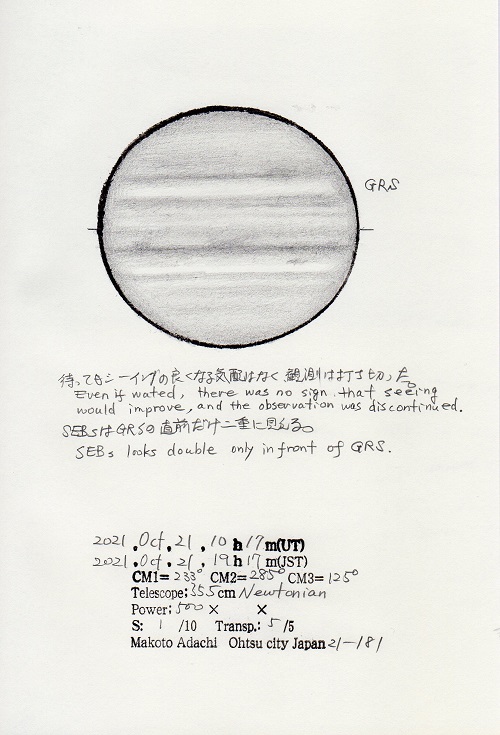 GRS
待ってもシーイングの良くなる気配はなく観測は打ち切った。
Even if wated, there was no sign that seeing
would improve, and the observation was discontinued.
SEBsはGRSの直前だけ二重に見える。
SEBs looks double only in front of GRS.
2021.Oct.21.10h17m(UT)
2021.Oct.21.19h17m(JST)
CM1=233° CM2=285° CM3=125°
Telescope;355cm Newtonian
Power;500× ×
S: 1/10 Transp.: 5/5
Makoto Adachi Ohtsu city Japan 21-181